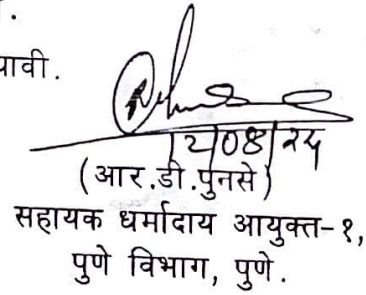 यावी.
(आर.डी.पुनसे)
सहायक धर्मादाय आयुक्त-१,
पुणे विभाग, पुणे.